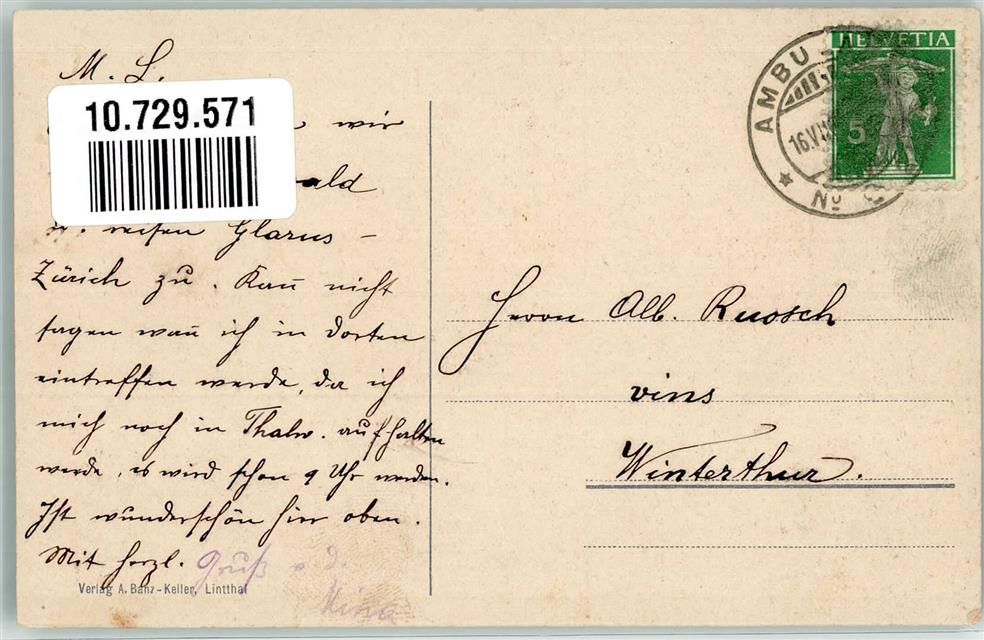 M. L.
10.729.571
wir
ald
u. reisen Glarus –
Zürich zu. Kann̄ nicht
sagen wan̄ ich in dorten
eintreffen werde, da ich
mich noch in Thalw. aufhalten
werde, es wird schon 9 Uhr werden.
Ist wunderschön hier oben.
Mit herzl. Gruß
Mina
Verlag A. Banz-Keller, Lintthal
HELVETIA
5
AMBU
16.VII
No
Herrn Alb. Ruosch
Winterthur.